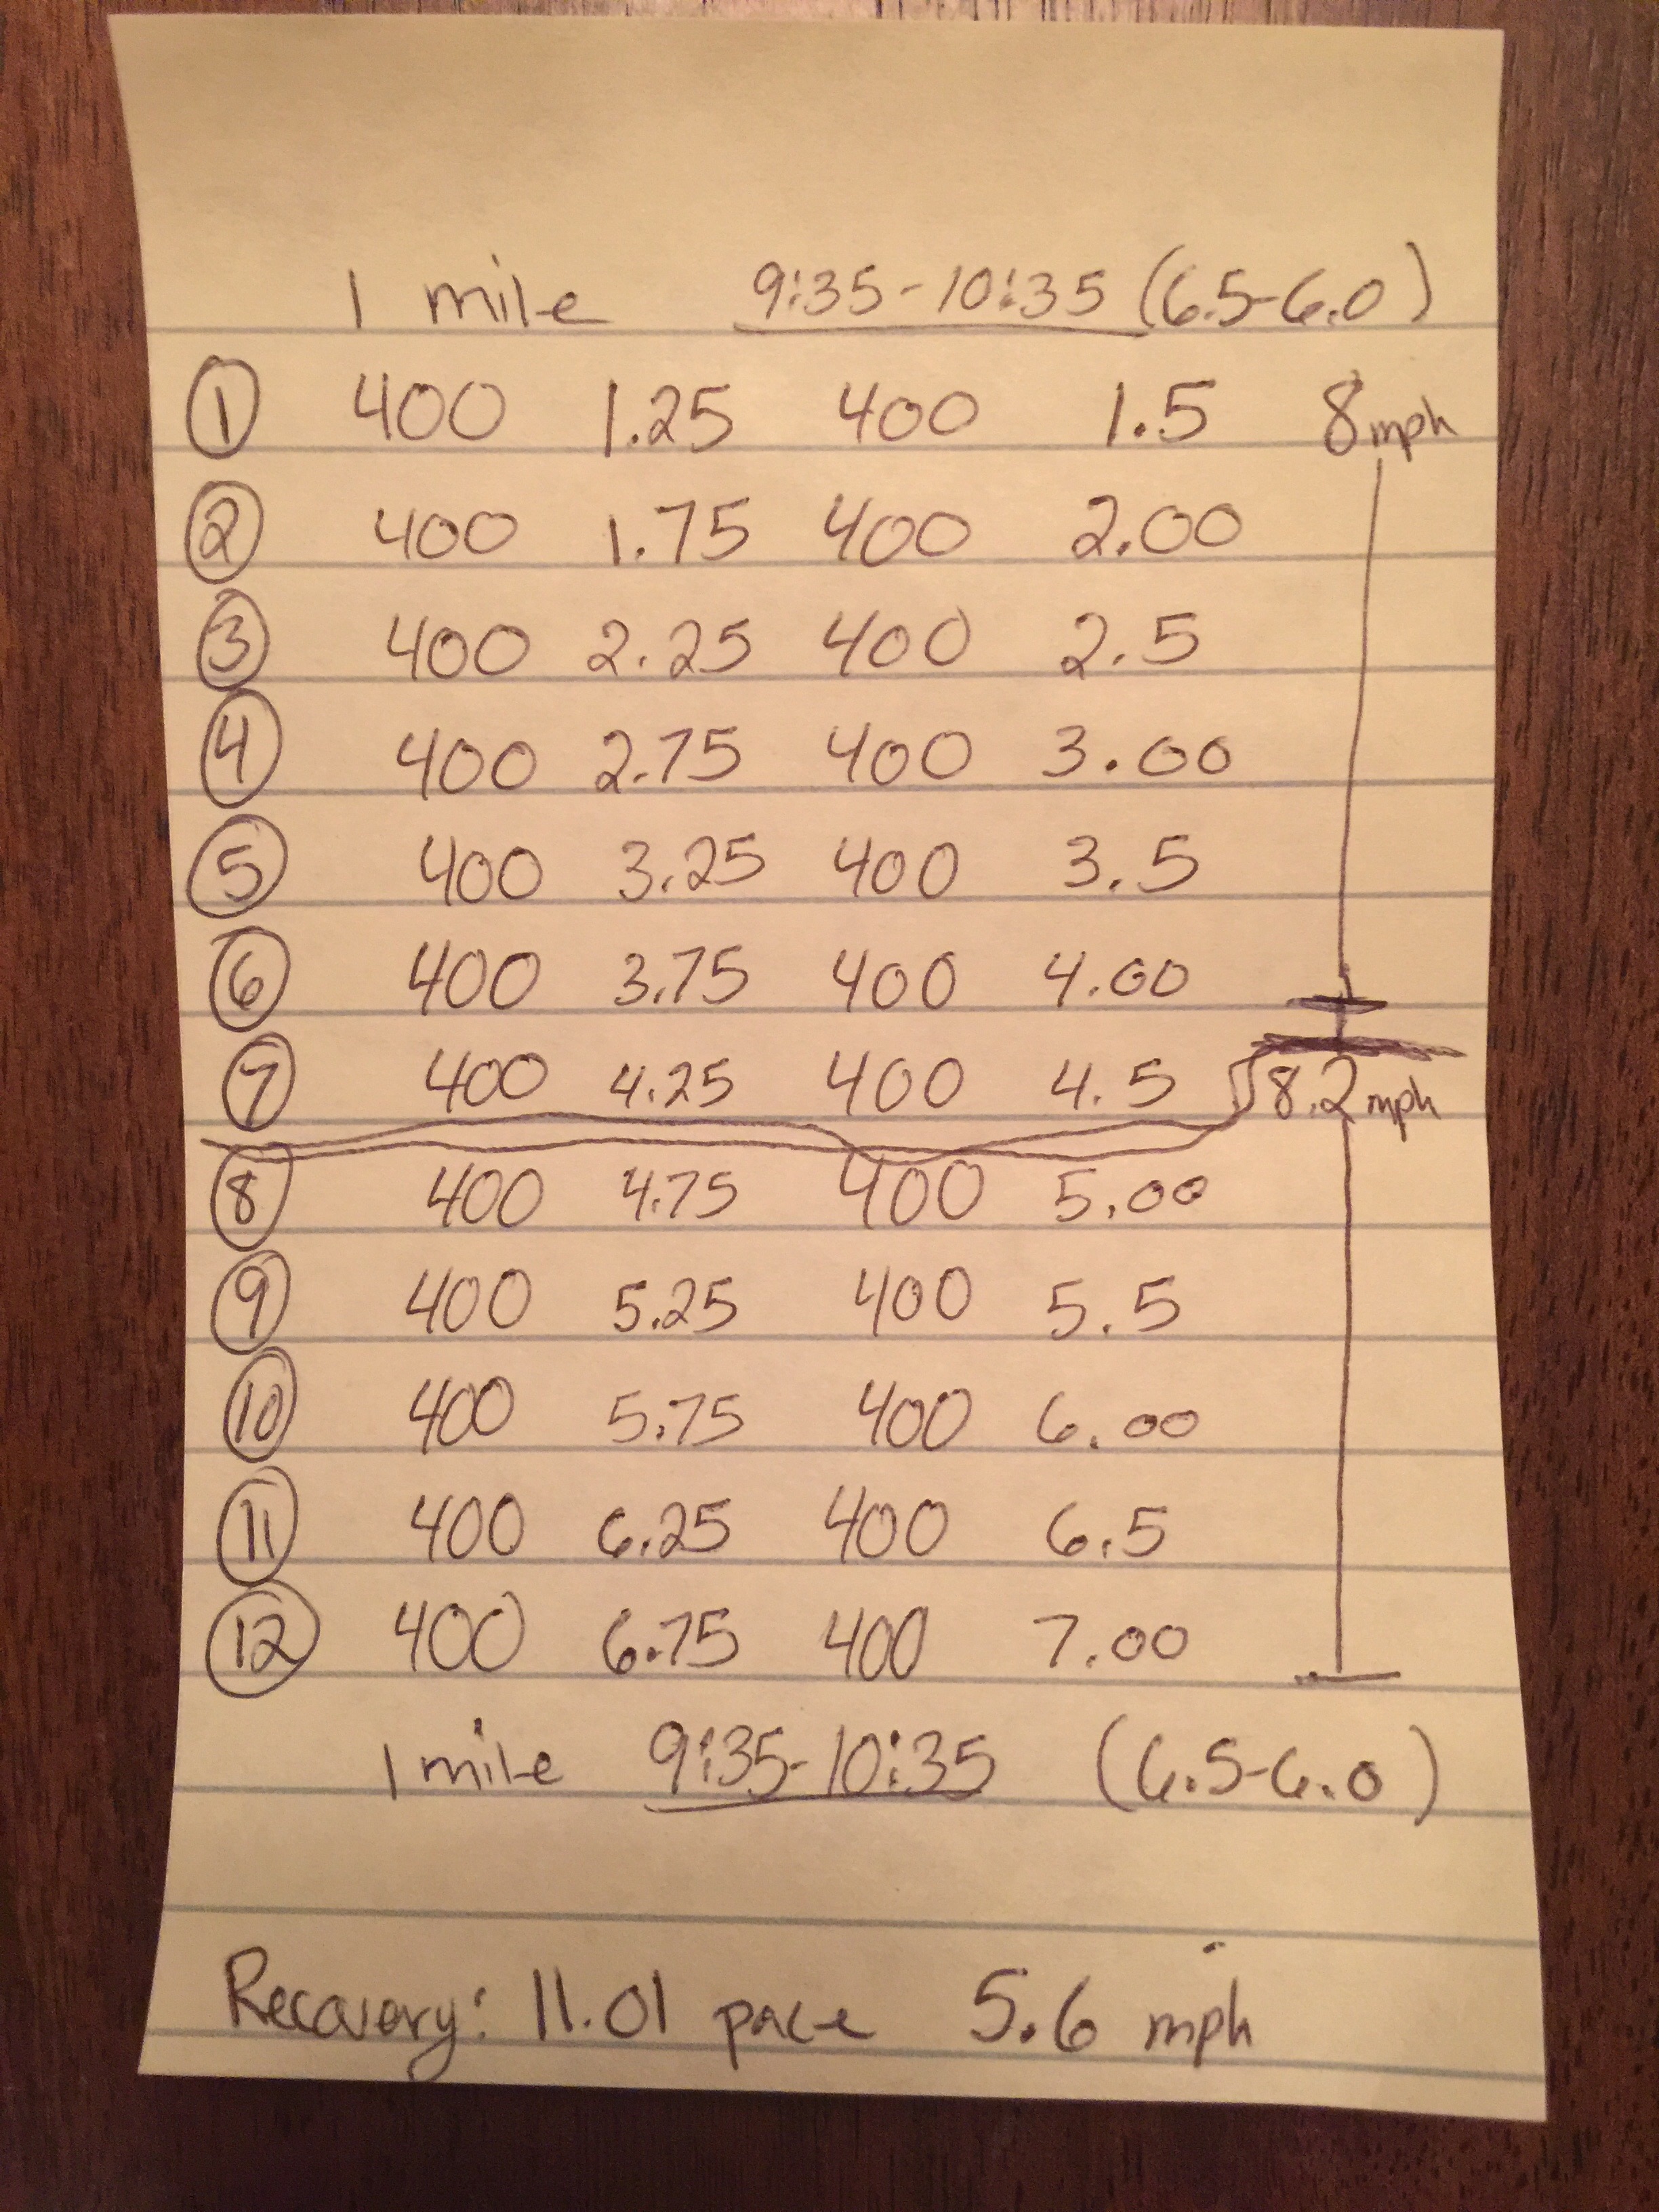 1 mile 9:35-10:35 (6.5-6.0)
1 400 1.25 400 1.5 8mph
2 400 1.75 400 2.00
3 400 2.25 400 2.5
4 400 2.75 400 3.00
5 400 3.25 400 3.5
6 400 3.75 400 4.00
7 400 4.25 400 4.5 8.2mph
8 400 4.75 400 5.00
9 400 5.25 400 5.5
10 400 5.75 400 6.00
11 400 6.25 400 6.5
12 400 6.75 400 7.00
1 mile 9:35-10:35 (6.5-6.0)
Recovery: 11.01 pace 5.6 mph